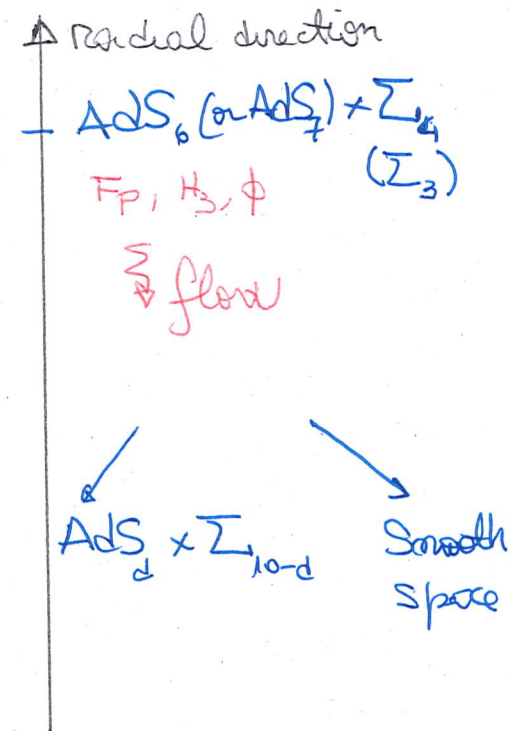 Radial direction
AdS₆ (or AdS₇) × Σ₄
(Σ₃)
Fₚ, H₃, ϕ
flow
AdS_d × Σ_{10-d}
Smooth
space